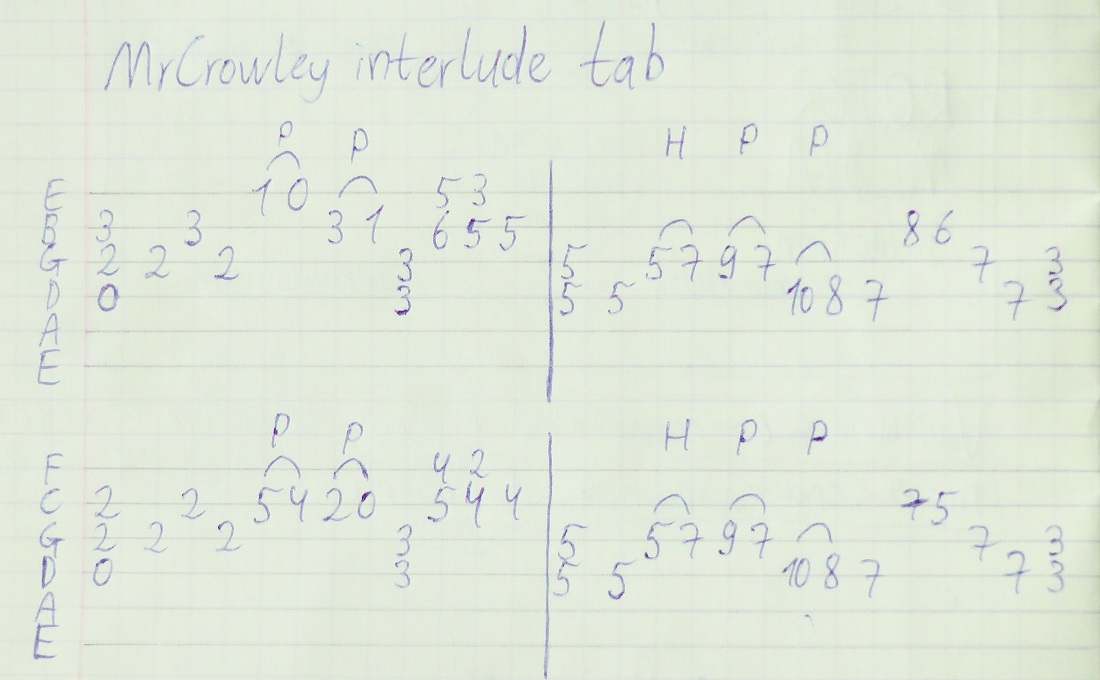 MrCrowley interlude tab
P P H P P
E 1 0 5 3
B 3 3 3 1 6 5 5 8 6
G 2 2 2 3 5 5 7 9 7 7 3
D 0 3 5 5 10 8 7 7 3
A
E
P P H P P
F 4 2
C 2 2 5 4 2 0 5 4 4 7 5
G 2 2 2 3 5 5 7 9 7 7 3
D 0 3 5 5 10 8 7 7 3
A
E